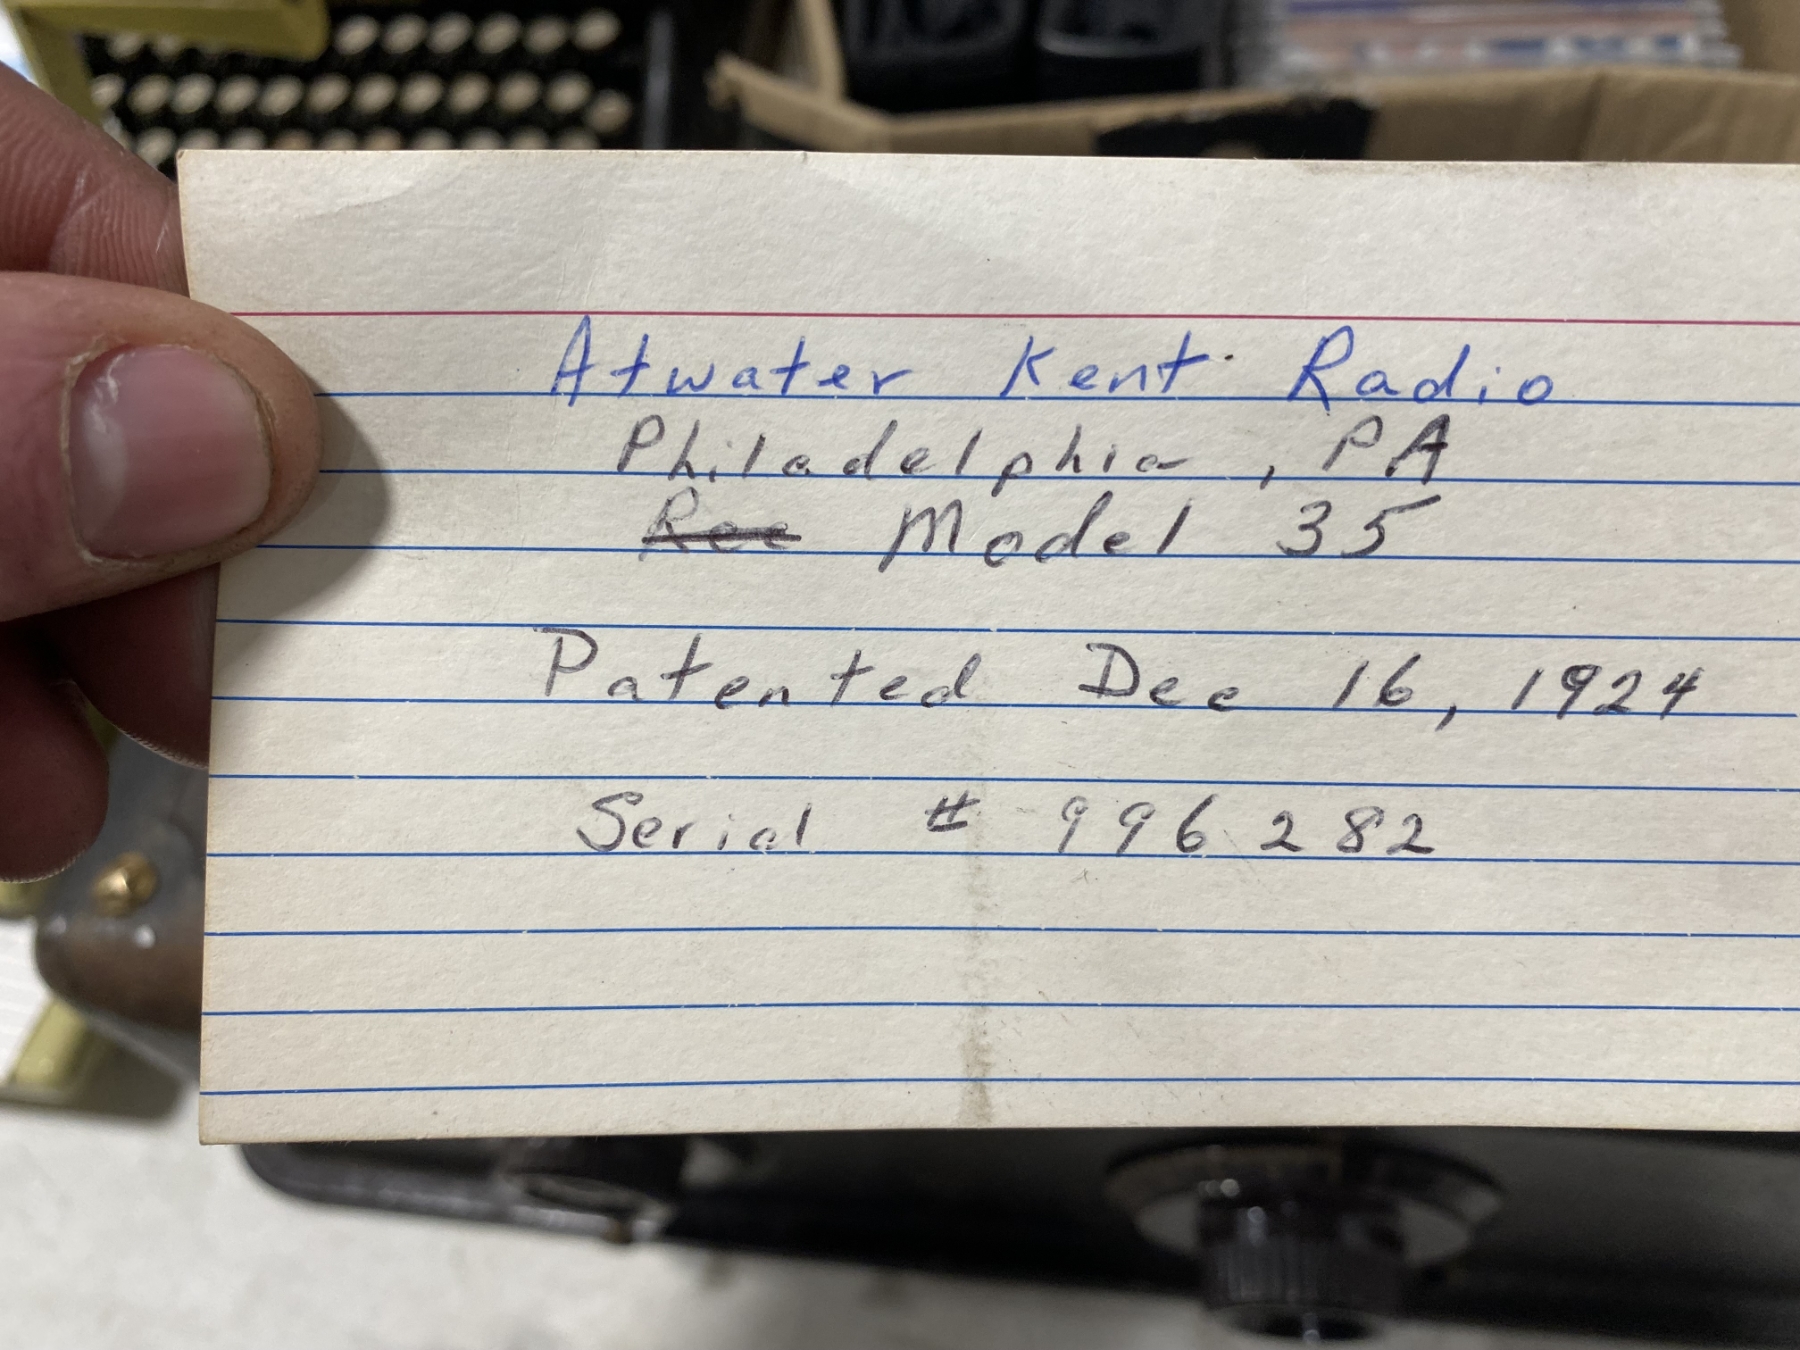 Atwater Kent Radio
Philadelphia, PA
Model 35
Patented Dec 16, 1924
Serial # 996282